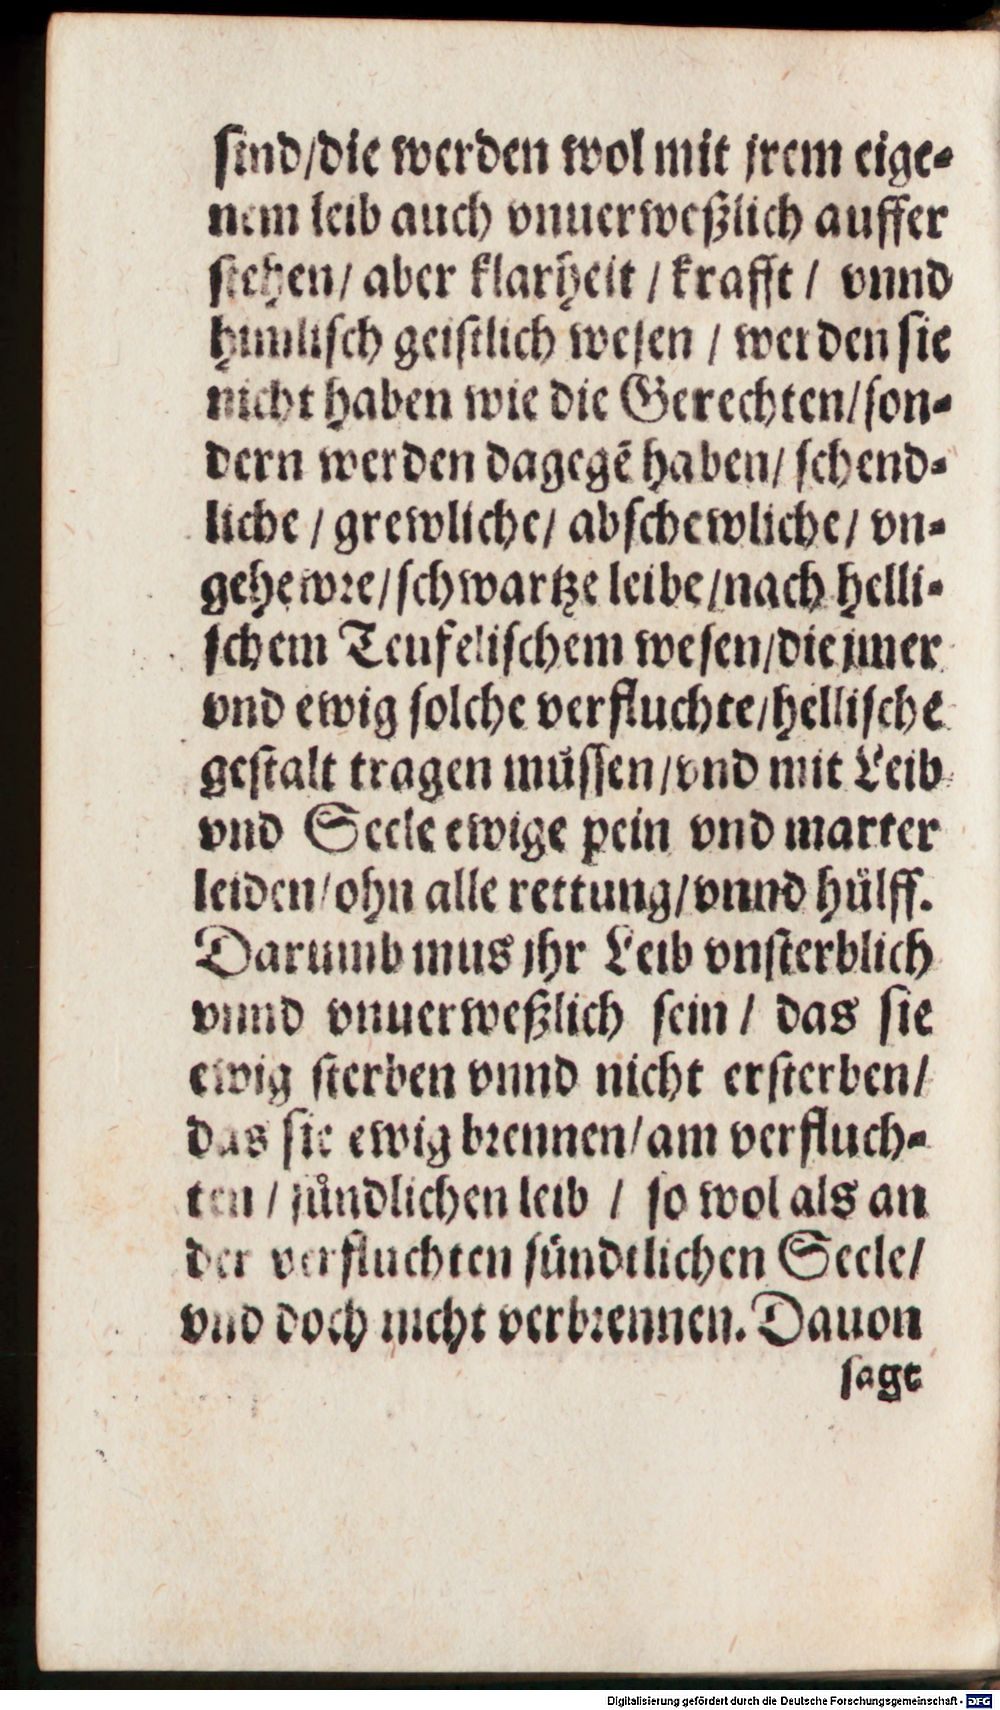 sind/die werden wol mit jrem eige-
nem leib auch vnuerweßlich auffer
stehen/ aber klarheit / krafft / vnnd
himlisch geistlich wesen / werden sie
nicht haben wie die Gerechten/son-
dern werden dagegẽ haben/ schend-
liche / grewliche/ abschewliche/ vn-
gehewre/schwartze leibe/nach helli-
schem Teufelischem wesen/die jmer
vnd ewig solche verfluchte/hellische
gestalt tragen muͤssen/vnd mit Leib
vnd Seele ewige pein vnd marter
leiden/ohn alle rettung/vnnd huͤlff.
Darumb mus jhr Leib vnsterblich
vnnd vnuerweßlich sein / das sie
ewig sterben vnnd nicht ersterben/
das sie ewig brennen/am verfluch-
ten / suͤndlichen leib / so wol als an
der verfluchten suͤndtlichen Seele/
vnd doch nicht verbrennen. Dauon
sagt
Digitalisierung gefördert durch die Deutsche Forschungsgemeinschaft - DFG